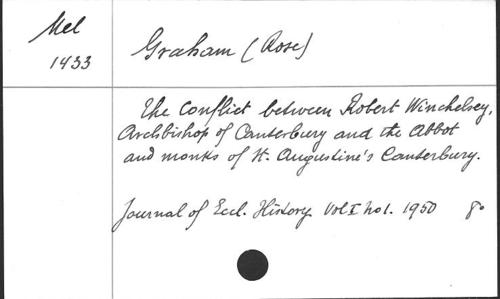 Mel
1433
Graham (Rose)
The Conflict between Robert Winchelsey,
Archbishop of Canterbury and the Abbot
and monks of St. Augustine's Canterbury.
Journal of Eccl. History Vol I no 1. 1950 8º